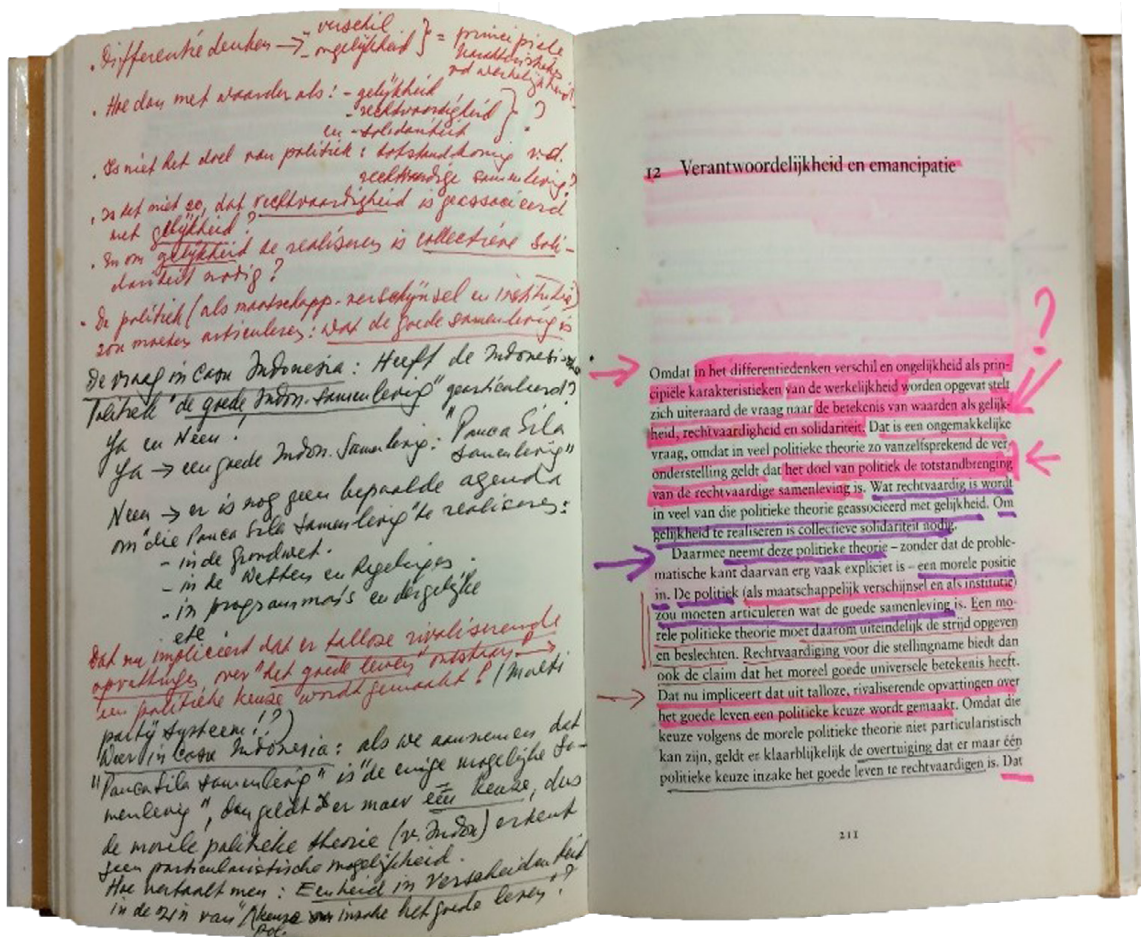 . Differentiedenken → - verschil
- ongelijkheid } = principiële
karakteristieken
vd werkelijkheid.
. Hoe dan met waarden als : - gelijkheid
- rechtvaardigheid } ?
en - solidariteit
. Is niet het doel van politiek : totstandkoming v.d.
rechtvaardige samenleving?
. Is het niet zo, dat rechtvaardigheid is geassocieerd
met gelijkheid?
. En om gelijkheid te realiseren is collectieve Soli-
dariteit nodig?
. De politiek (als maatschapp. verschijnsel en institutie)
zou moeten articuleren : wat de goede samenleving is
De vraag in casu Indonesia : Heeft de Indonesische
Politiek "de goede Indon. Samenleving" gearticuleerd?
Ja en Neen !
Ja → een goede Indon. Samenleving : "Panca Sila
Samenleving"
Neen → er is nog geen bepaalde agenda
om "die Panca Sila Samenleving" te realiseren :
- in de Grondwet.
- in de Wetten en Regelingen
- in programma's en dergelijke
etc
Dat nu impliceert dat er talloze rivaliserende
opvattingen over "het goede leven" ontstaan →
een politieke keuze wordt gemaakt ? (Multi
partij systeem !?)
Weer in casu Indonesia : als we aannemen dat
"Panca Sila samenleving" is "de enige mogelijke Sa-
menleving", dan geldt er maar één keuze, dus
de morele politieke theorie (v. Indon) erkent
geen particularistische mogelijkheid.
Hoe vertaalt men : Eenheid in Verscheidenheid
in de zin van "keuze inzake het goede leven"?
Pol.
12 Verantwoordelijkheid en emancipatie
?
Omdat in het differentiedenken verschil en ongelijkheid als prin-
cipiële karakteristieken van de werkelijkheid worden opgevat stelt
zich uiteraard de vraag naar de betekenis van waarden als gelijk-
heid, rechtvaardigheid en solidariteit. Dat is een ongemakkelijke
vraag, omdat in veel politieke theorie zo vanzelfsprekend de ver-
onderstelling geldt dat het doel van politiek de totstandbrenging
van de rechtvaardige samenleving is. Wat rechtvaardig is wordt
in veel van die politieke theorie geassocieerd met gelijkheid. Om
gelijkheid te realiseren is collectieve solidariteit nodig.
Daarmee neemt deze politieke theorie – zonder dat de proble-
matische kant daarvan erg vaak expliciet is – een morele positie
in. De politiek (als maatschappelijk verschijnsel en als institutie)
zou moeten articuleren wat de goede samenleving is. Een mo-
rele politieke theorie moet daarom uiteindelijk de strijd opgeven
en beslechten. Rechtvaardiging voor die stellingname biedt dan
ook de claim dat het moreel goede universele betekenis heeft.
Dat nu impliceert dat uit talloze, rivaliserende opvattingen over
het goede leven een politieke keuze wordt gemaakt. Omdat die
keuze volgens de morele politieke theorie niet particularistisch
kan zijn, geldt er klaarblijkelijk de overtuiging dat er maar één
politieke keuze inzake het goede leven te rechtvaardigen is. Dat
211